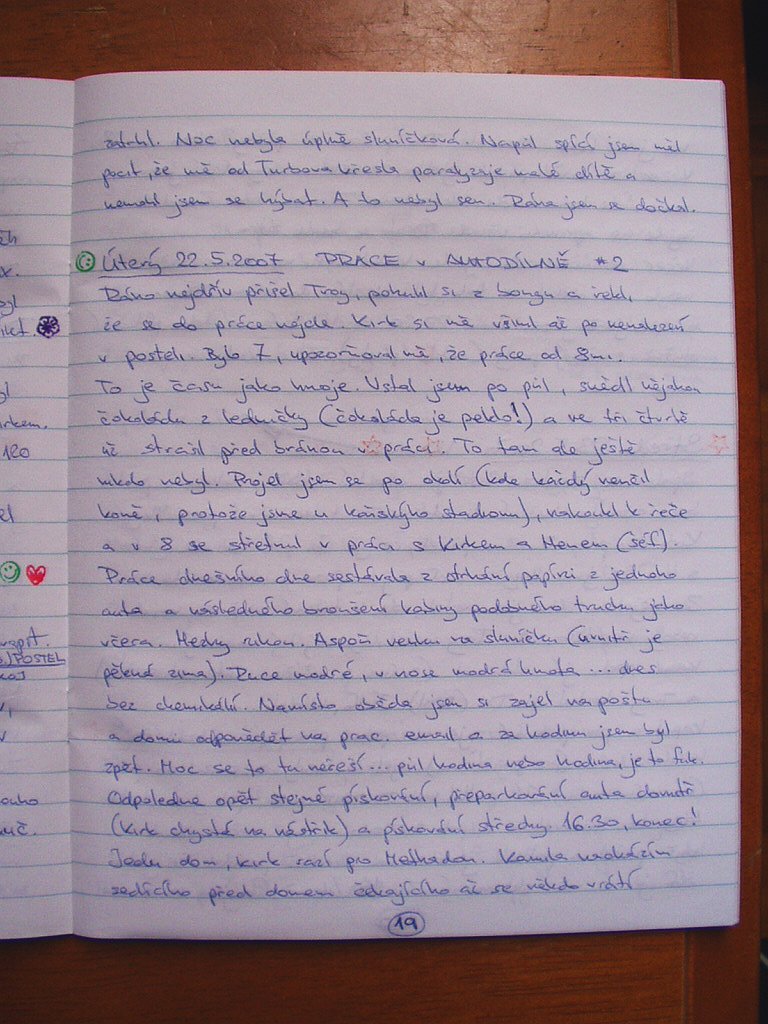 zatchl. Noc nebyla úplně sluníčková. Napůl spící jsem měl
pocit, že mě od Turbova křesla paralyzuje malé dítě a
nemohl jsem se hýbat. A to nebyl sen. Rána jsem se dočkal.
Úterý 22.5.2007 PRÁCE v AUTODÍLNĚ #2
Ráno nejdřív přišel Troy, pohulil si z bongu a řekl,
že se do práce nejde. Kirk si mě všiml až po nenalezení
v posteli. Bylo 7, upozorňoval mě, že práce od 8mi.
To je času jako hnoje. Vstal jsem po půl, snědl nějakou
čokoládu z ledničky (čokoláda je peklo!) a ve tři čtvrtě
už strašil před bránou v práci. To tam ale ještě
nikdo nebyl. Projel jsem se po okolí (kde každý venčil
koně, protože jsme u koňskýho stadionu), nakoukl k řece
a v 8 se střetnul v práci s Kirkem a Menem (šéf).
Práce dnešního dne sestávala z otrhání papírů z jednoho
auta a následného broušení kabiny podobného trucku jako
včera. Hezky rukou. Aspoň venku na sluníčku (uvnitř je
pěkná zima). Ruce modré, v nose modrá hmota ... dnes
bez chemikálií. Namísto oběda jsem si zajel na poštu
a domů odpovědět na prac. email a za hodinu jsem byl
zpět. Moc se to tu neřeší... půl hodina nebo hodina, je to fuk.
Odpoledne opět stejné pískování, přeparkování auta dovnitř
(Kirk chystá na nástřik) a pískování středny. 16.30, konec!
Jedu dom, Kirk razí pro Methadon. Kamila nacházím
sedícího před domem čekajícího až se někdo vrátí
19
120
POSTEL